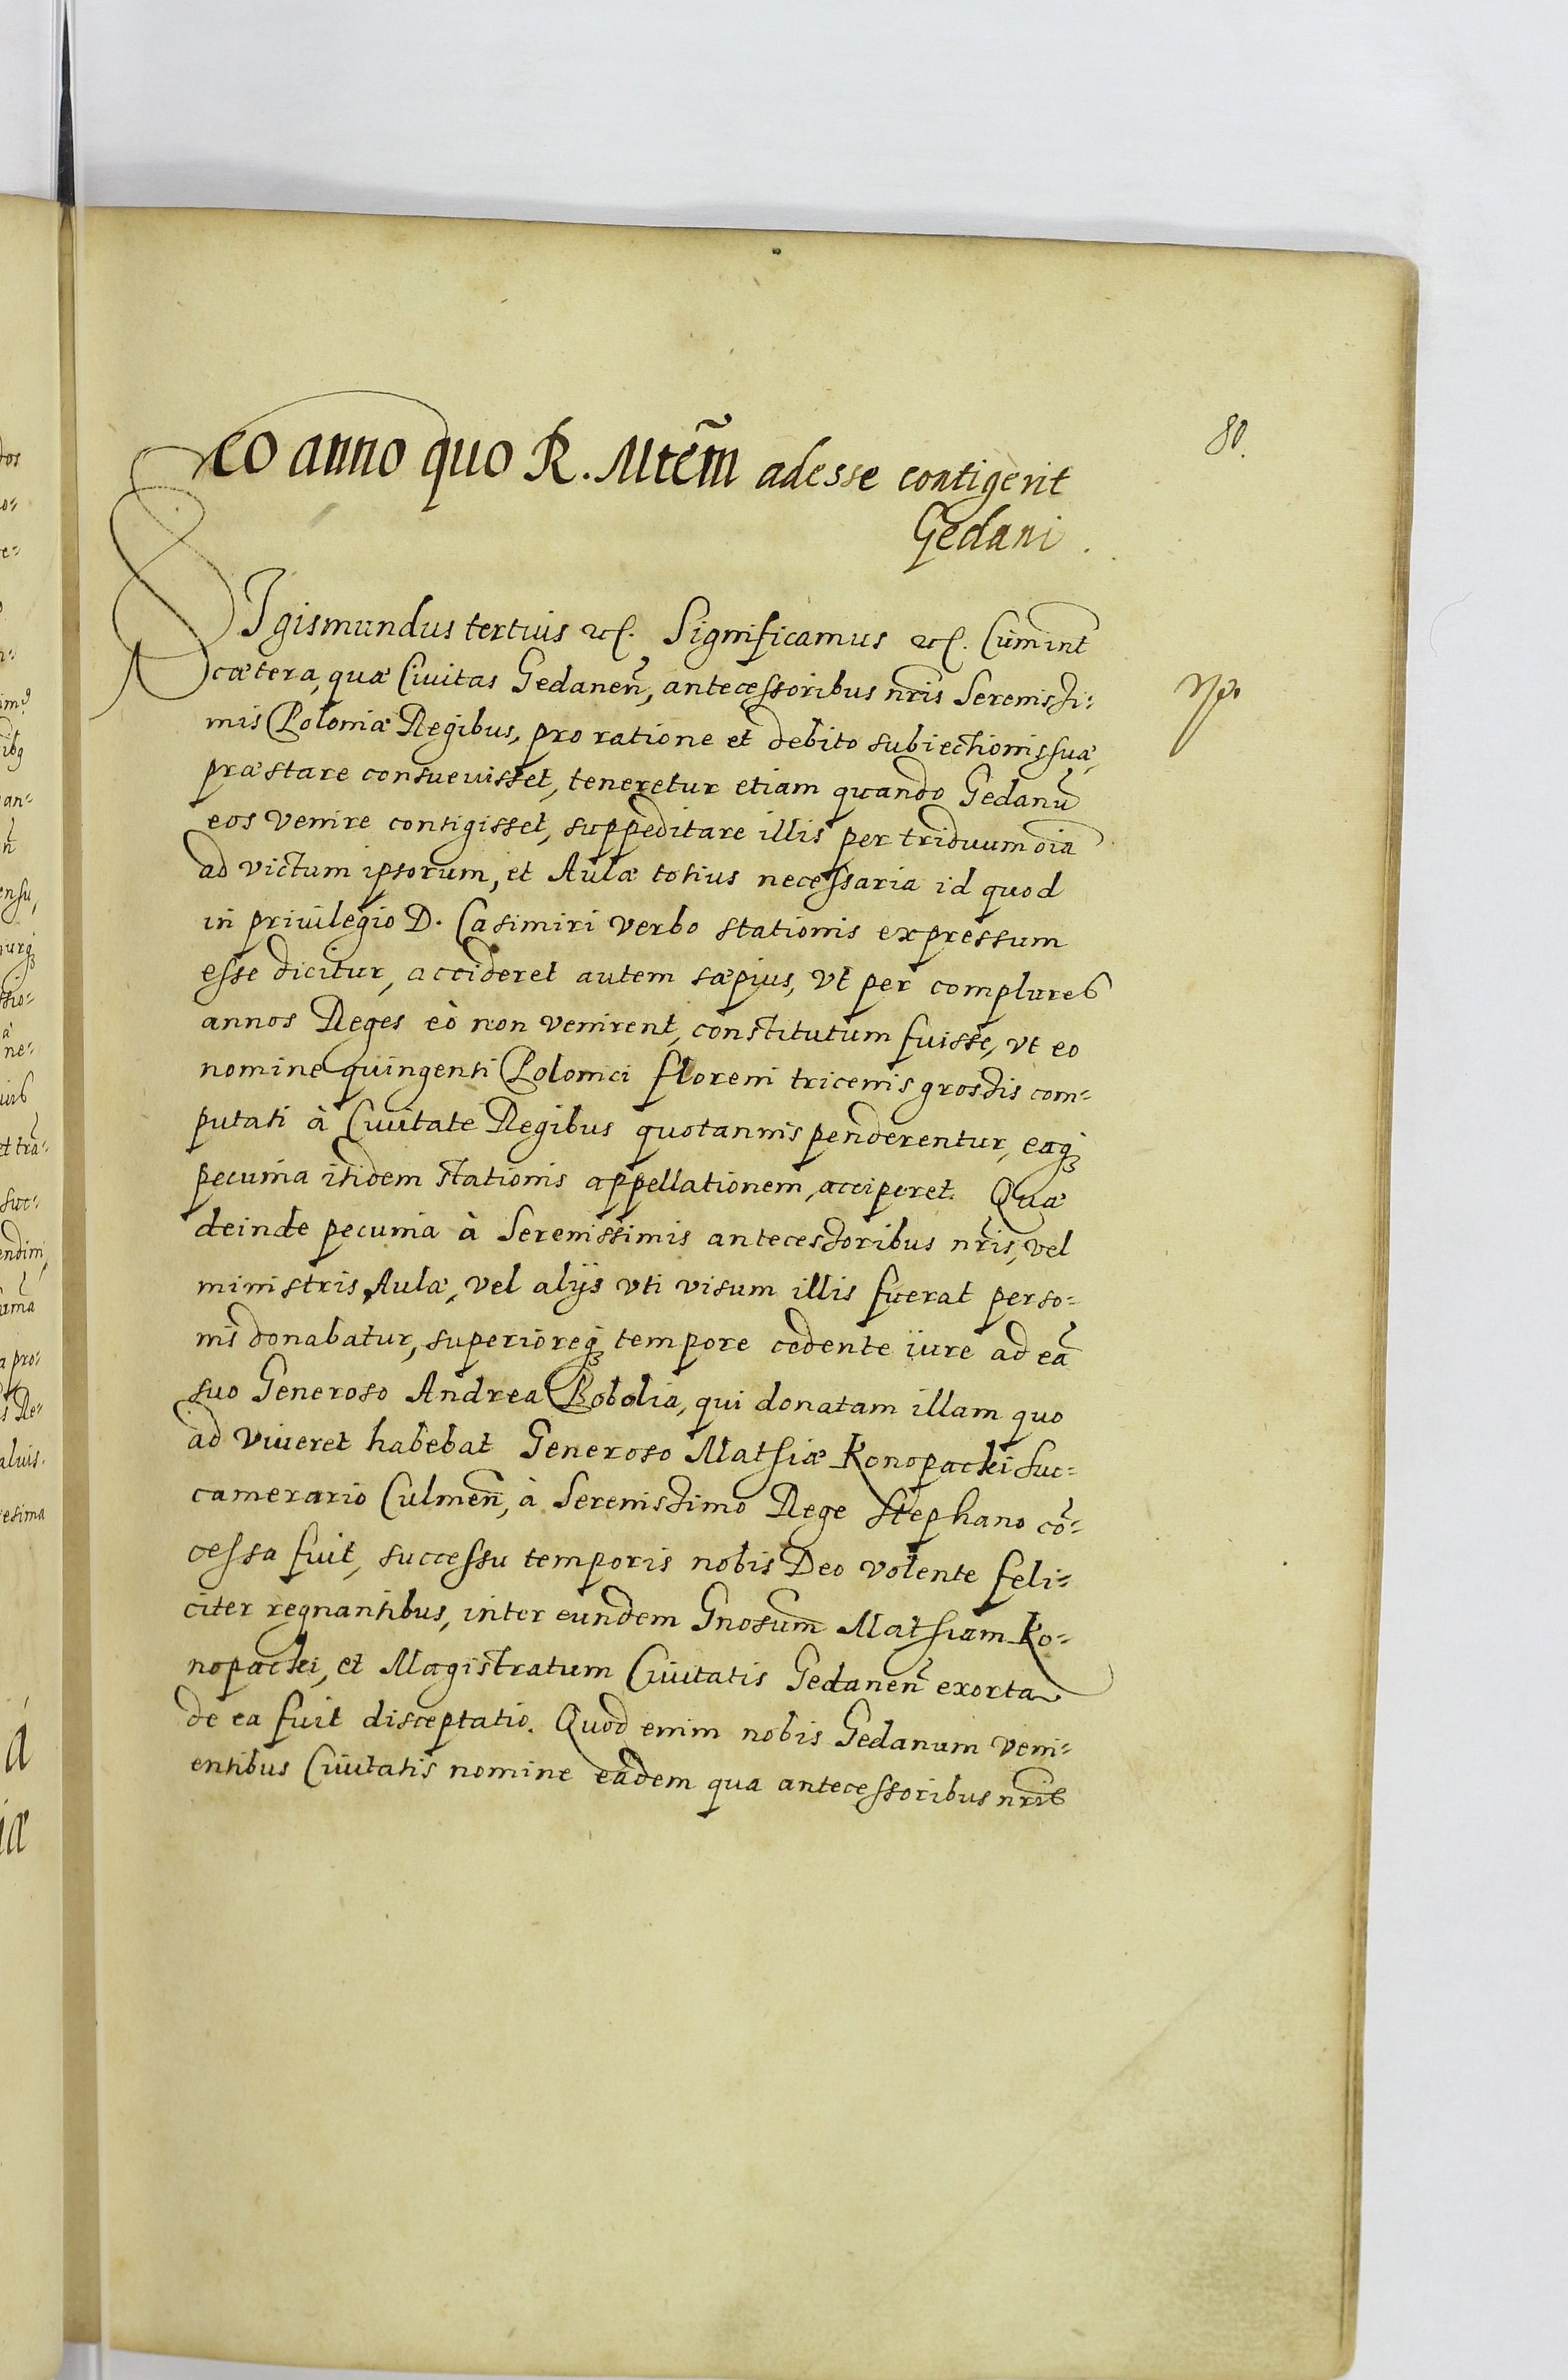 80.
eo anno quo R. Mtem̃ adesse contigerit
Gedani.
SIgismundus tertius etc. Significamus etc. Cum int̃
cætera, quæ Ciuitas Gedanen̄, antecessoribus nr̄is Serenissi:
mis Poloniæ Regibus, pro ratione et debito subiectionis suæ,
præstare consueuisset, teneretur etiam quando Gedanū
eos venire contigisset, suppeditare illis per triduum oīa
ad victum ipsorum, et Aulæ totius necessaria id quod
in priuilegio D. Casimiri verbo stationis expressum
esse dicitur, accideret autem sæpius, vt per complures
annos Reges eò non venirent, constitutum fuisse, vt eo
nomine quingenti Polonici floreni tricenis grossis com=
putati à Ciuitate Regibus quotannis penderentur, eaq́ꝫ
pecunia itidem stationis appellationem, acciperet. Quæ
deinde pecunia à Serenissimis antecessoribus nr̄is, vel
ministris Aulæ, vel alijs vti visum illis fuerat perso=
nis donabatur, superioreq́ꝫ tempore cedente iure ad eā
suo Generoso Andrea Bobolia, qui donatam illam quo
ad viueret habebat Generoso Mathiæ Konopacki Suc=
camerario Culmen̄, à Serenissimo Rege Stephano cō=
cessa fuit, successu temporis nobis Deo volente feli=
citer regnantibus, inter eundem Gnosum̄ Mathiam Ko=
nopacki, et Magistratum Ciuitatis Gedanen̄ exorta
de ea fuit disceptatio. Quod enim nobis Gedanum veni=
entibus Ciuitatis nomine eadem qua antecessoribus nr̄is